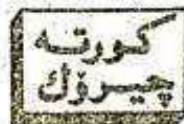 كورته
چیرۆك